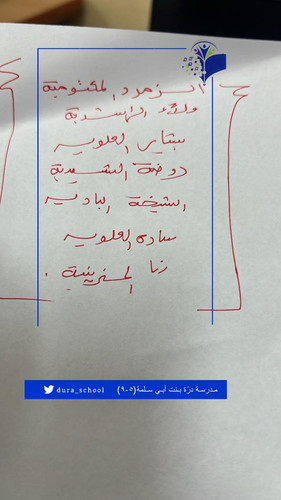 الزمرد المكتومية
ولاء الراشدية
بشاير العلوية
روضة السعيدية
الشيخة البادية
سارة العلوية
رنا المشرفية
مدرسة درّة بنت أبي سلمة (٥-٩)
dura_school